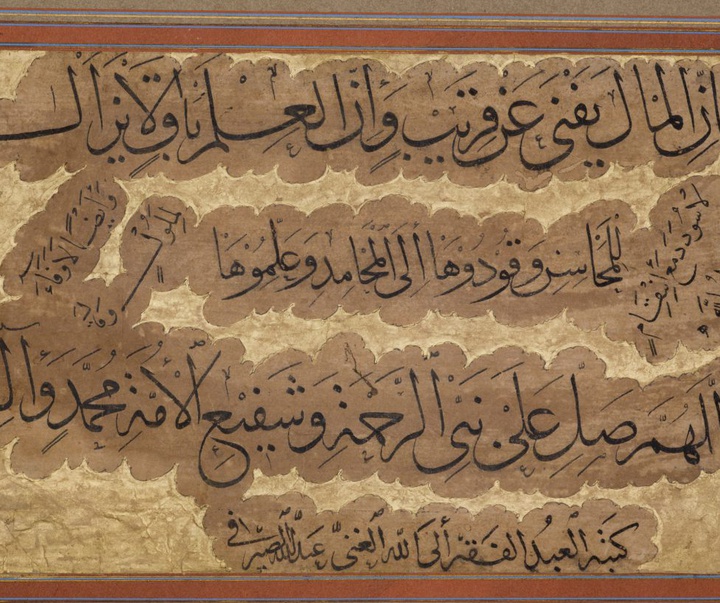 اِنَّ المَالَ يَفْنَى عَنْ قَرِيْبٍ وَاِنَّ العِلْمَ بَاقٍ لَا يَزَالُ
لا سُوددَ مَعَ انْتِقَامٍ
لِلْمَحَاسِنِ وَقُودُوهَا اِلَى المَحَامِدِ وَعَلِّمُوْهَا
وَايضًا لا وَفَاءَ
لملُولٍ
اَللّهُمَّ صَلِّ عَلَى نَبِيِّ الرَّحْمَةِ وَشَفِيْعِ الاُمَّةِ مُحَمَّدٍ وَآلِ
كتبه العبد الفقير الى الله الغني عبد الله الصيرفي